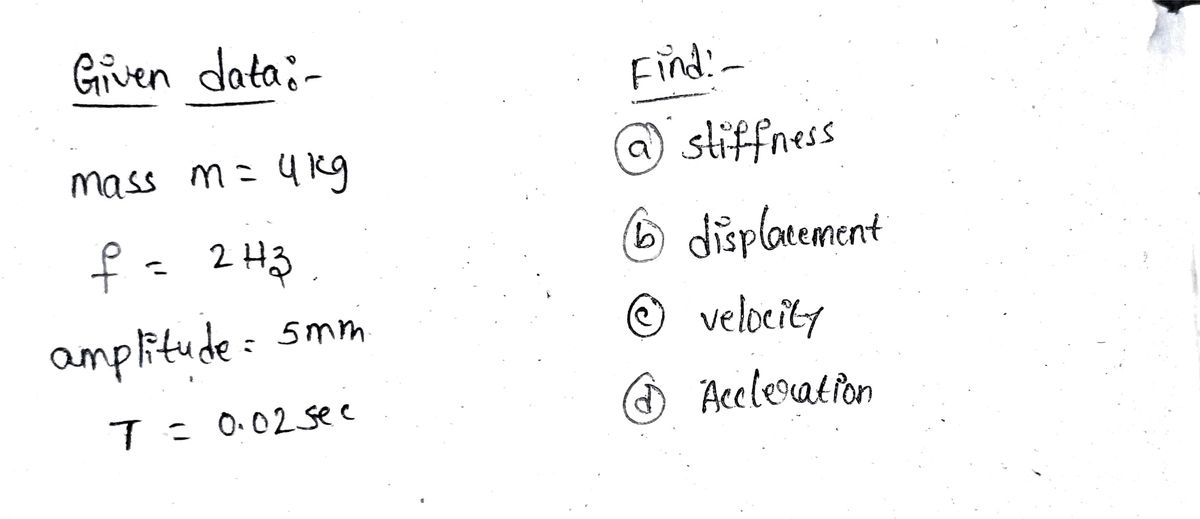 Given data:-
mass m = 4 kg
f = 2 Hz.
amplitude = 5mm
T = 0.02 sec
Find:-
(a) stiffness
(b) displacement
(c) velocity
(d) Accleration